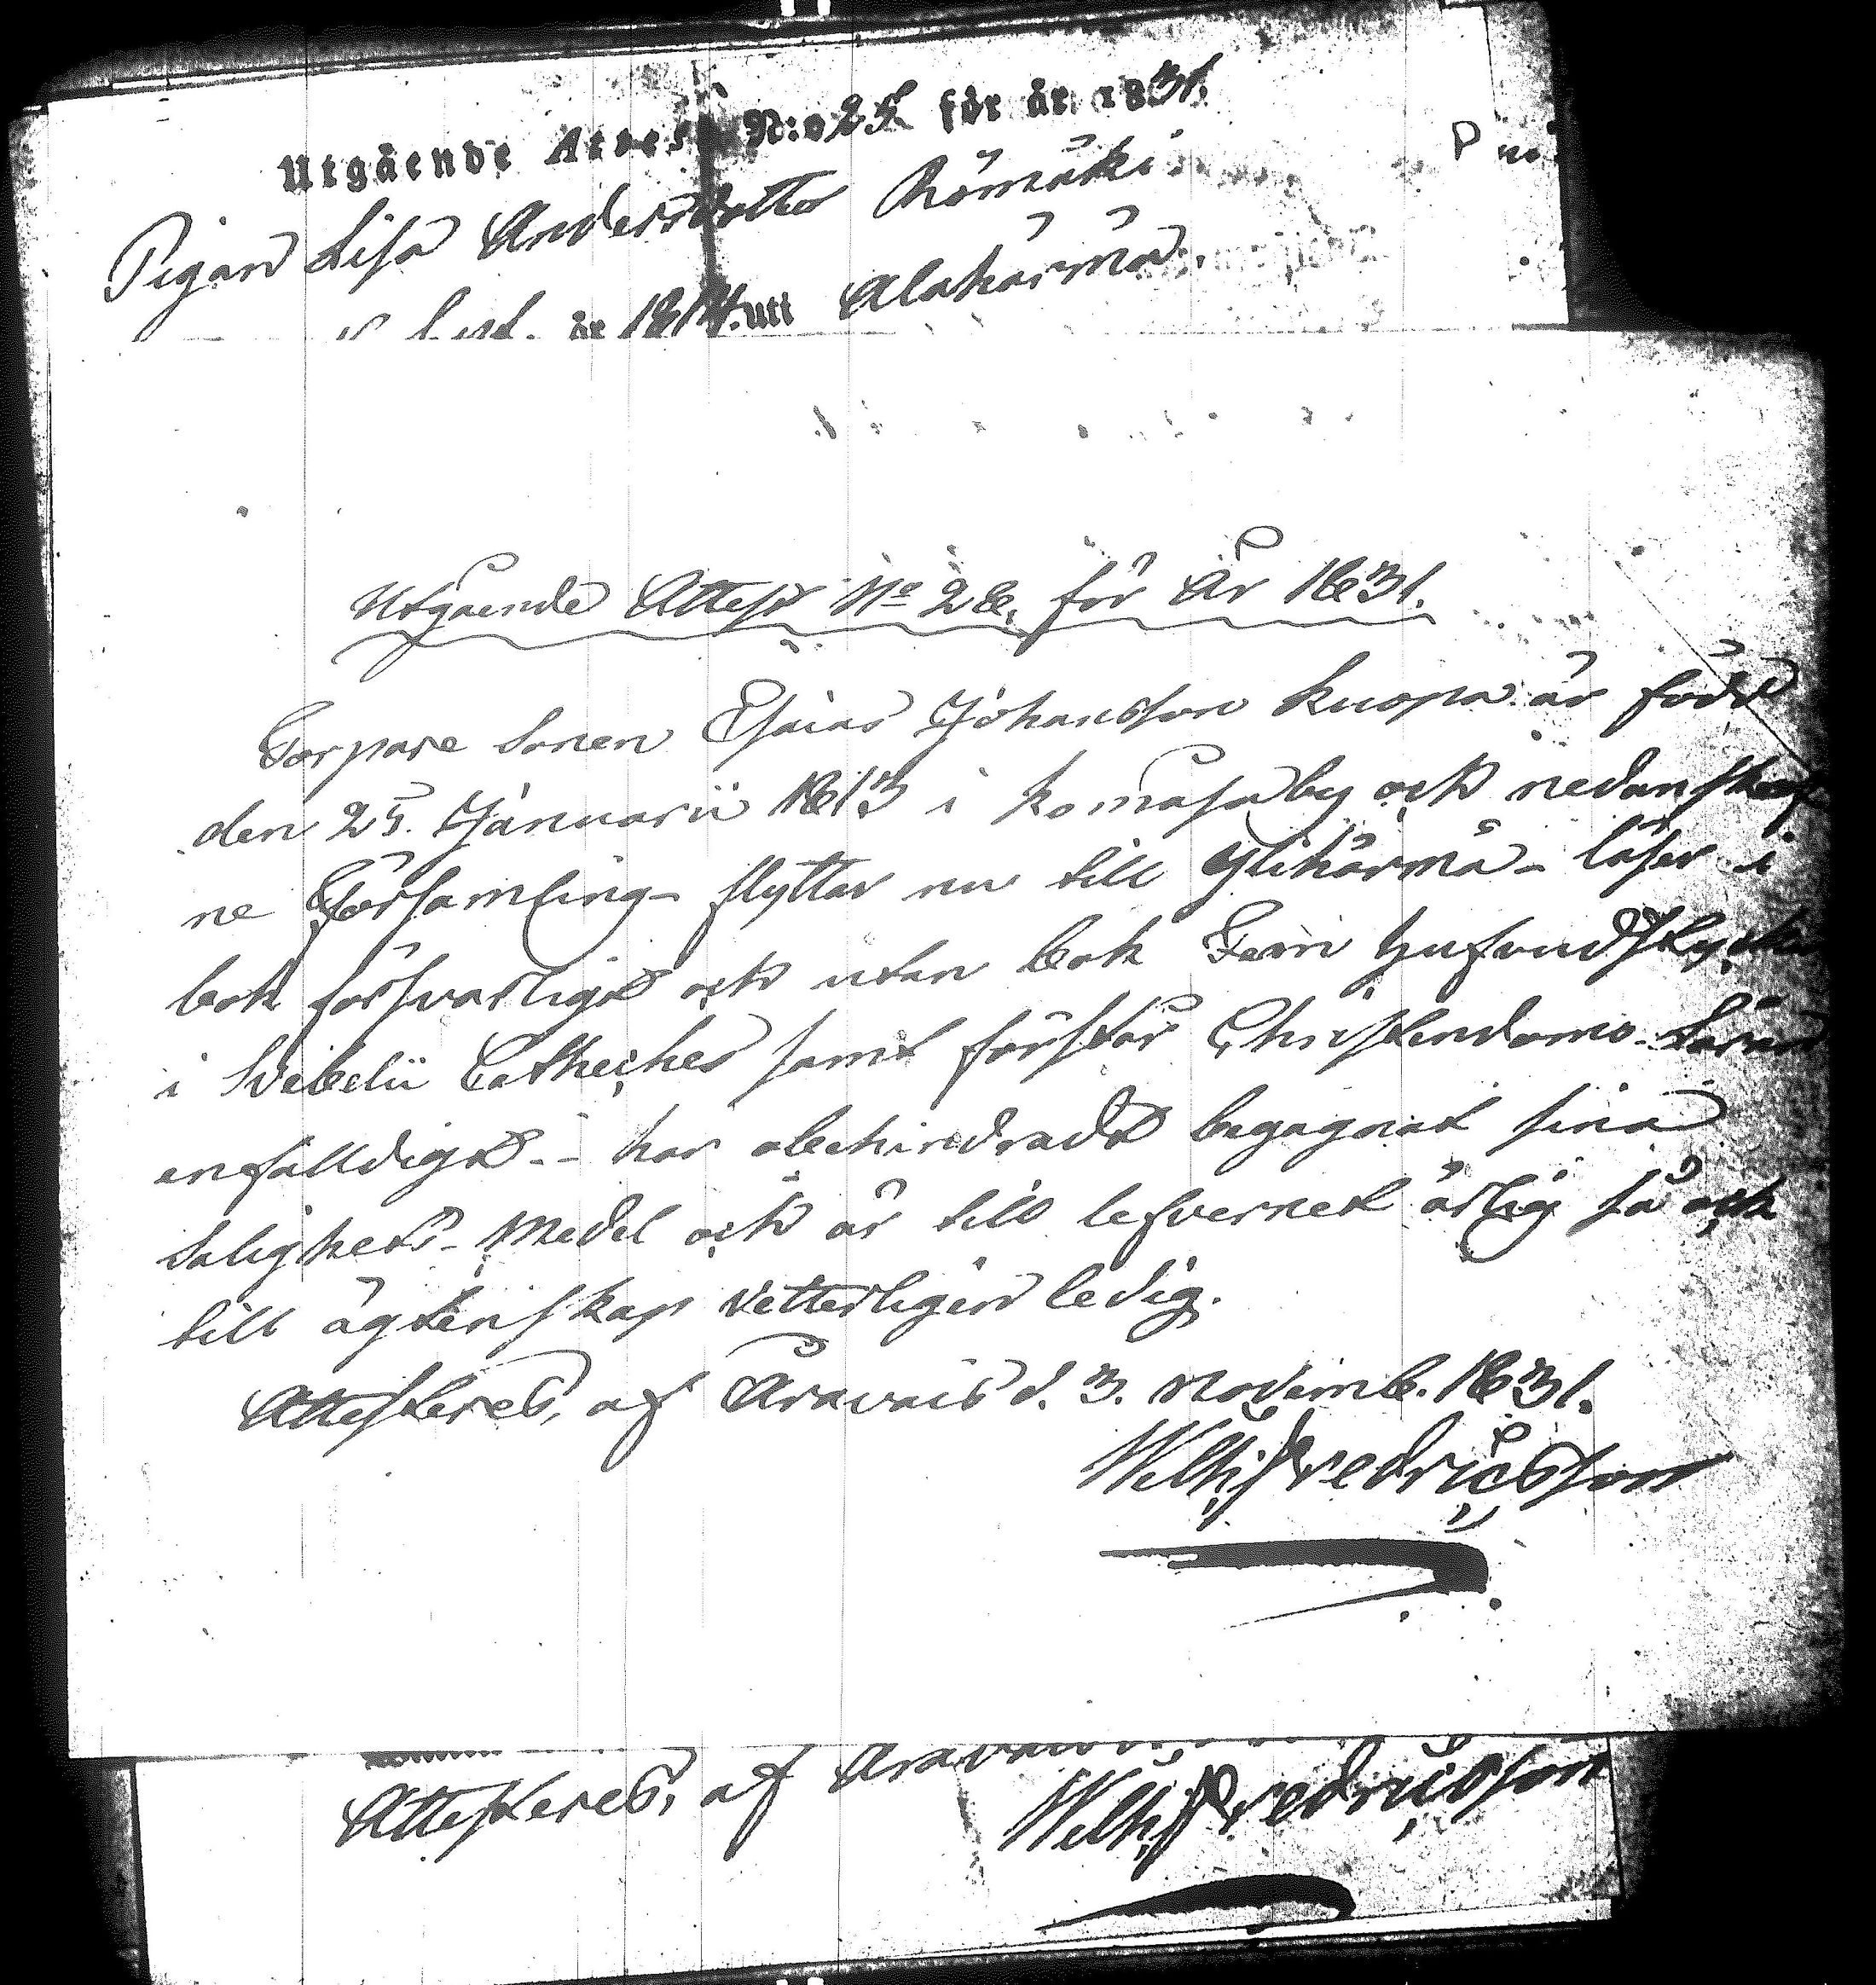 Utgående Attest N:o 25 för år 1831.
Pigan Lisa Andersdotter
är 1814. utt Alahärmä.
Utgående Attest No 28. för År 1831.
Torpare Sonen Esaias Johansson Kuopa är född
den 25. Januarii 1813 i Komåsa by och nedanskref
ne Församling - flyttar nu till Ylihärmä - läser i
bok försvarligt och utan bok Fem hufvudstycken
i Svebelii Catheches samt förstår Christendoms-Läran
enfalldigt - har obehindradt begagnat sina
Salighets-Medel och är till lefvernet ärlig så och
till ägtenskap vetterligen ledig.
Attesteres, af Oravais d. 3. Novemb. 1831.
Wilh Fredricsson
Attesteres, af Oravais
Wilh Fredricsson